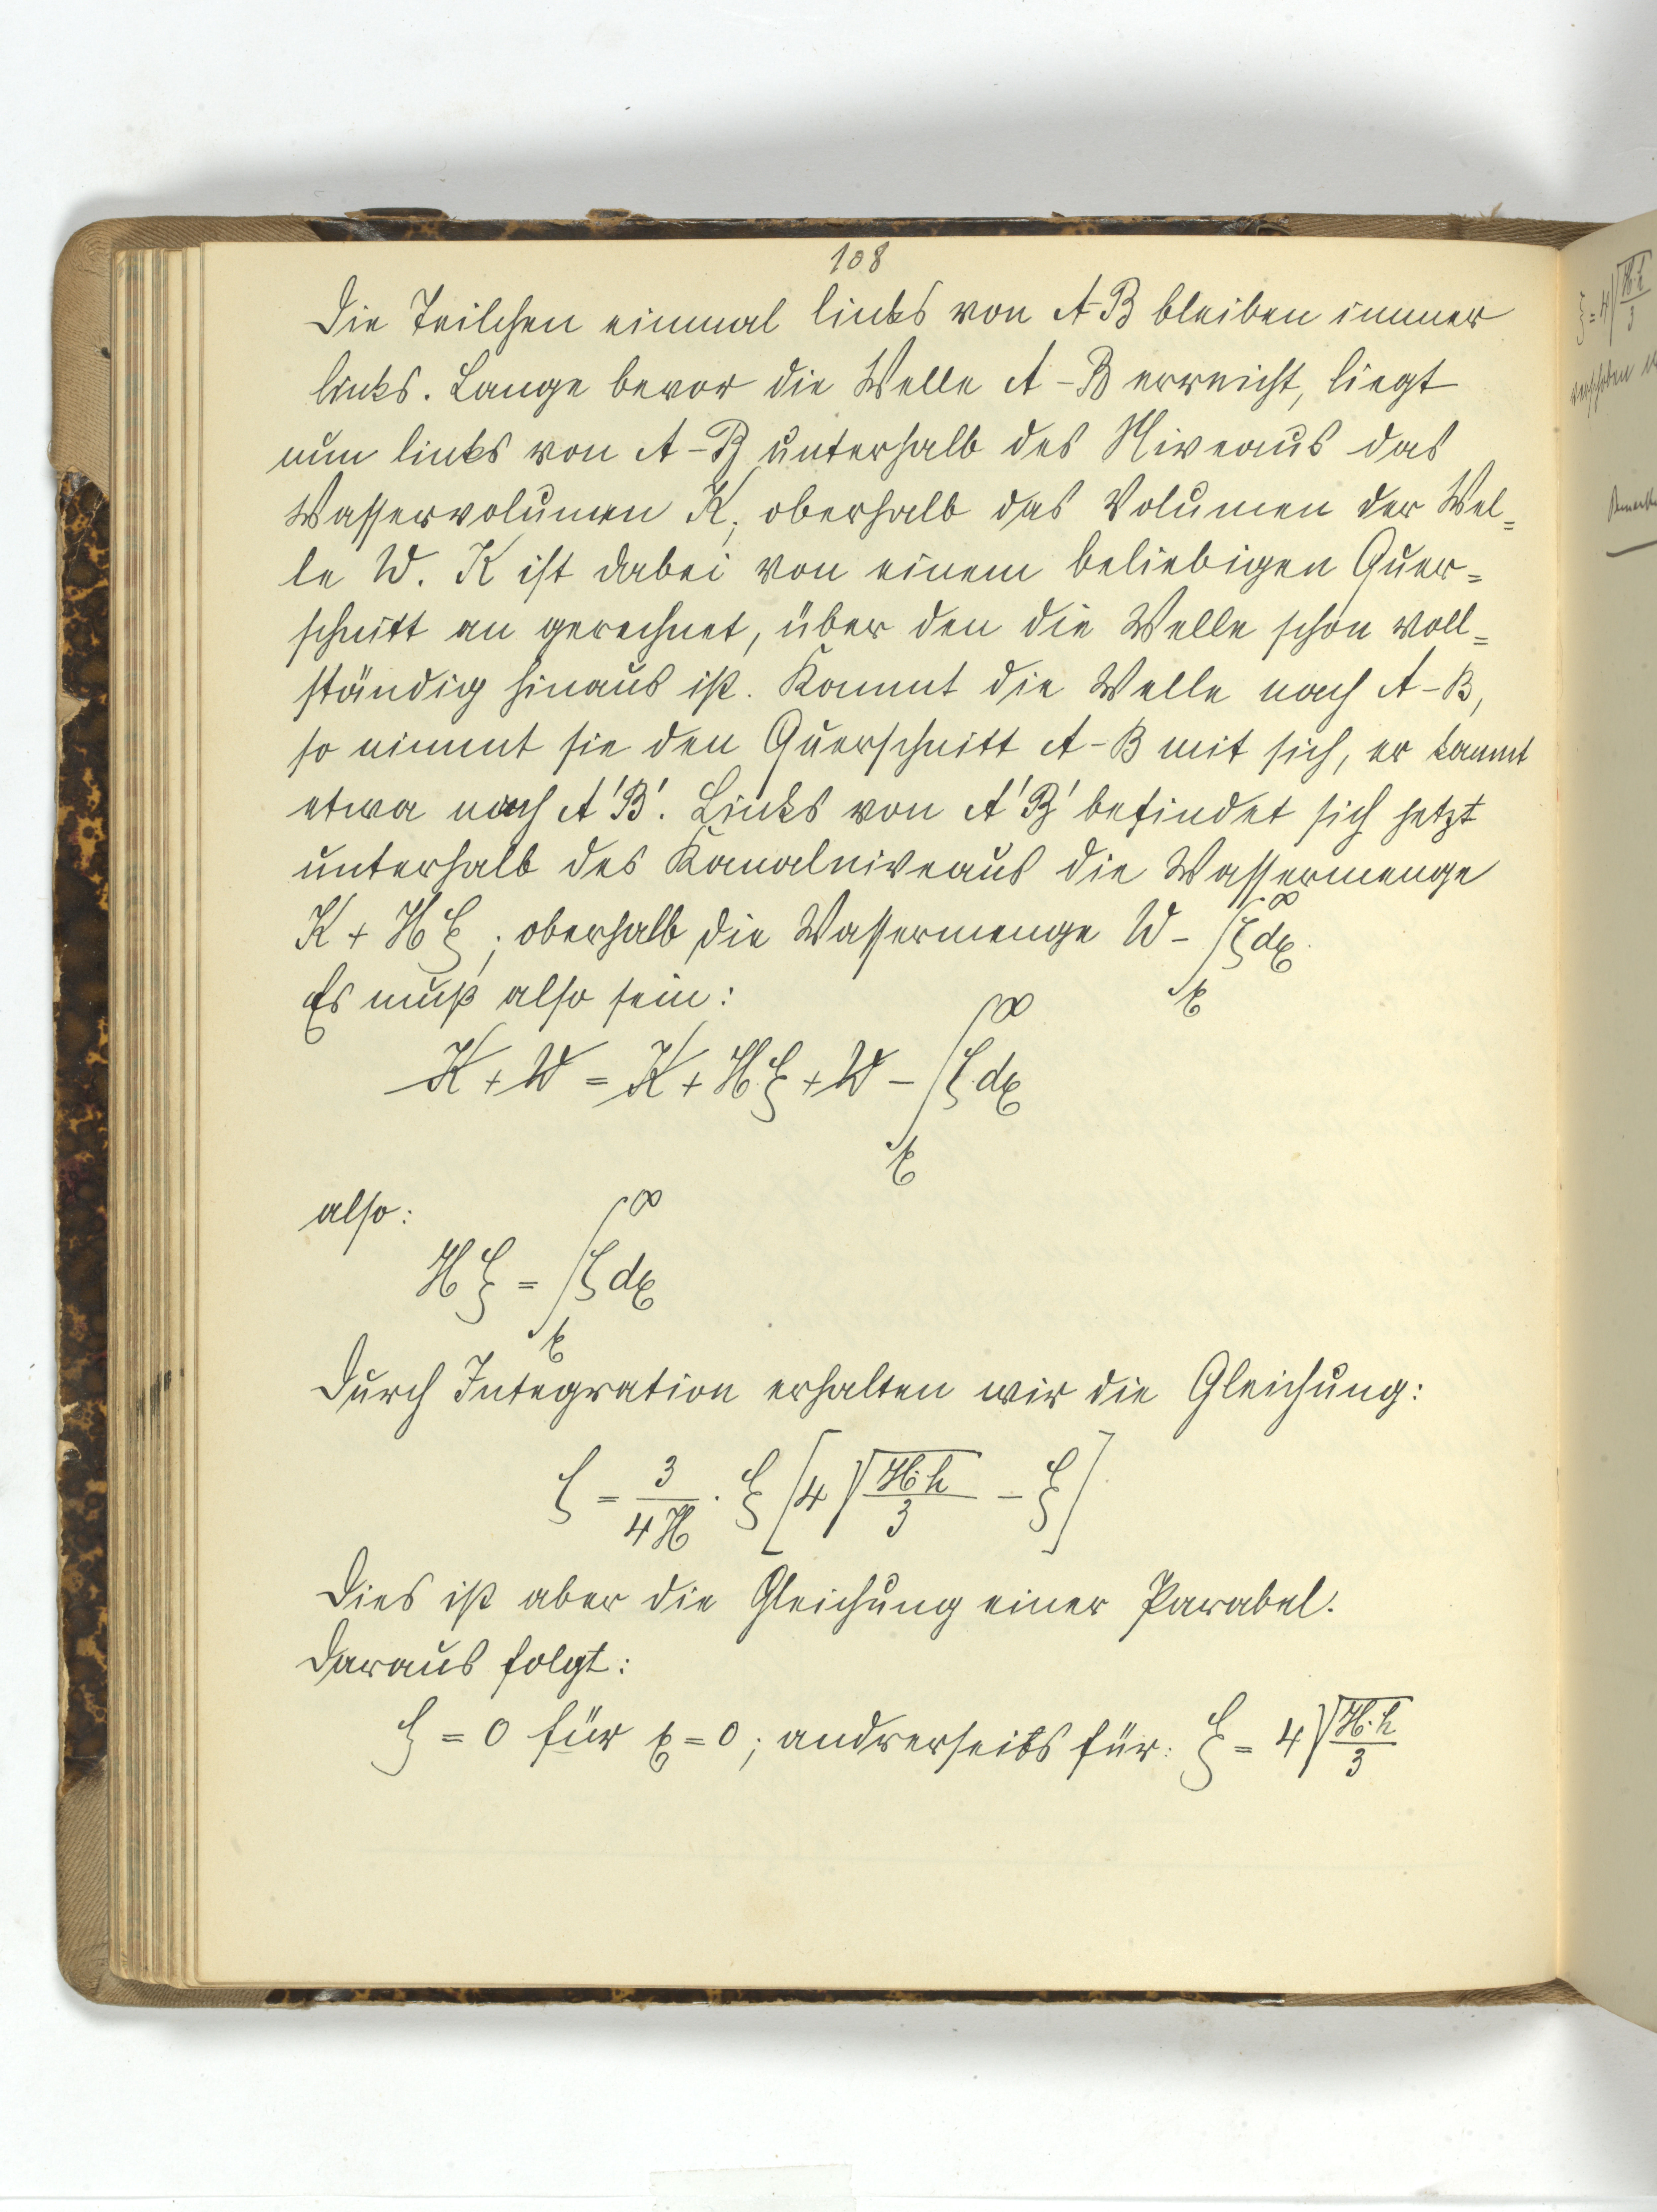 108
Die Teilchen einmal links von A-B bleiben immer
links. Lange bevor die Welle A-B erreicht, liegt
nun links von A-B unterhalb des Niveaus das
Wasservolumen K, oberhalb das Volumen der Wel=
le W. K ist dabei von einem beliebigen Quer=
schnitt an gerechnet, über den die Welle schon voll=
ständig hinaus ist. Kommt die Welle nach A-B,
so nimmt sie den Querschnitt A-B mit sich, er kommt
etwa nach A'B'. Links von A'B' befindet sich jetzt
unterhalb des Kanalniveaus die Wassermenge
K + Hξ; oberhalb die Wassermenge W - ∫_x^∞ ζdx.
Es muß also sein:
K + W = K + H·ξ + W - ∫_x^∞ ζ·dx
also:
Hξ = ∫_x^∞ ζdx
Durch Integration erhalten wir die Gleichung:
ζ = 3/4H · ξ [4√(H·h/3) - ξ]
Dies ist aber die Gleichung einer Parabel.
Daraus folgt:
ζ = 0 für ξ = 0; andrerseits für: ξ = 4√(H·h/3)
ξ = 4√(H·h/3)